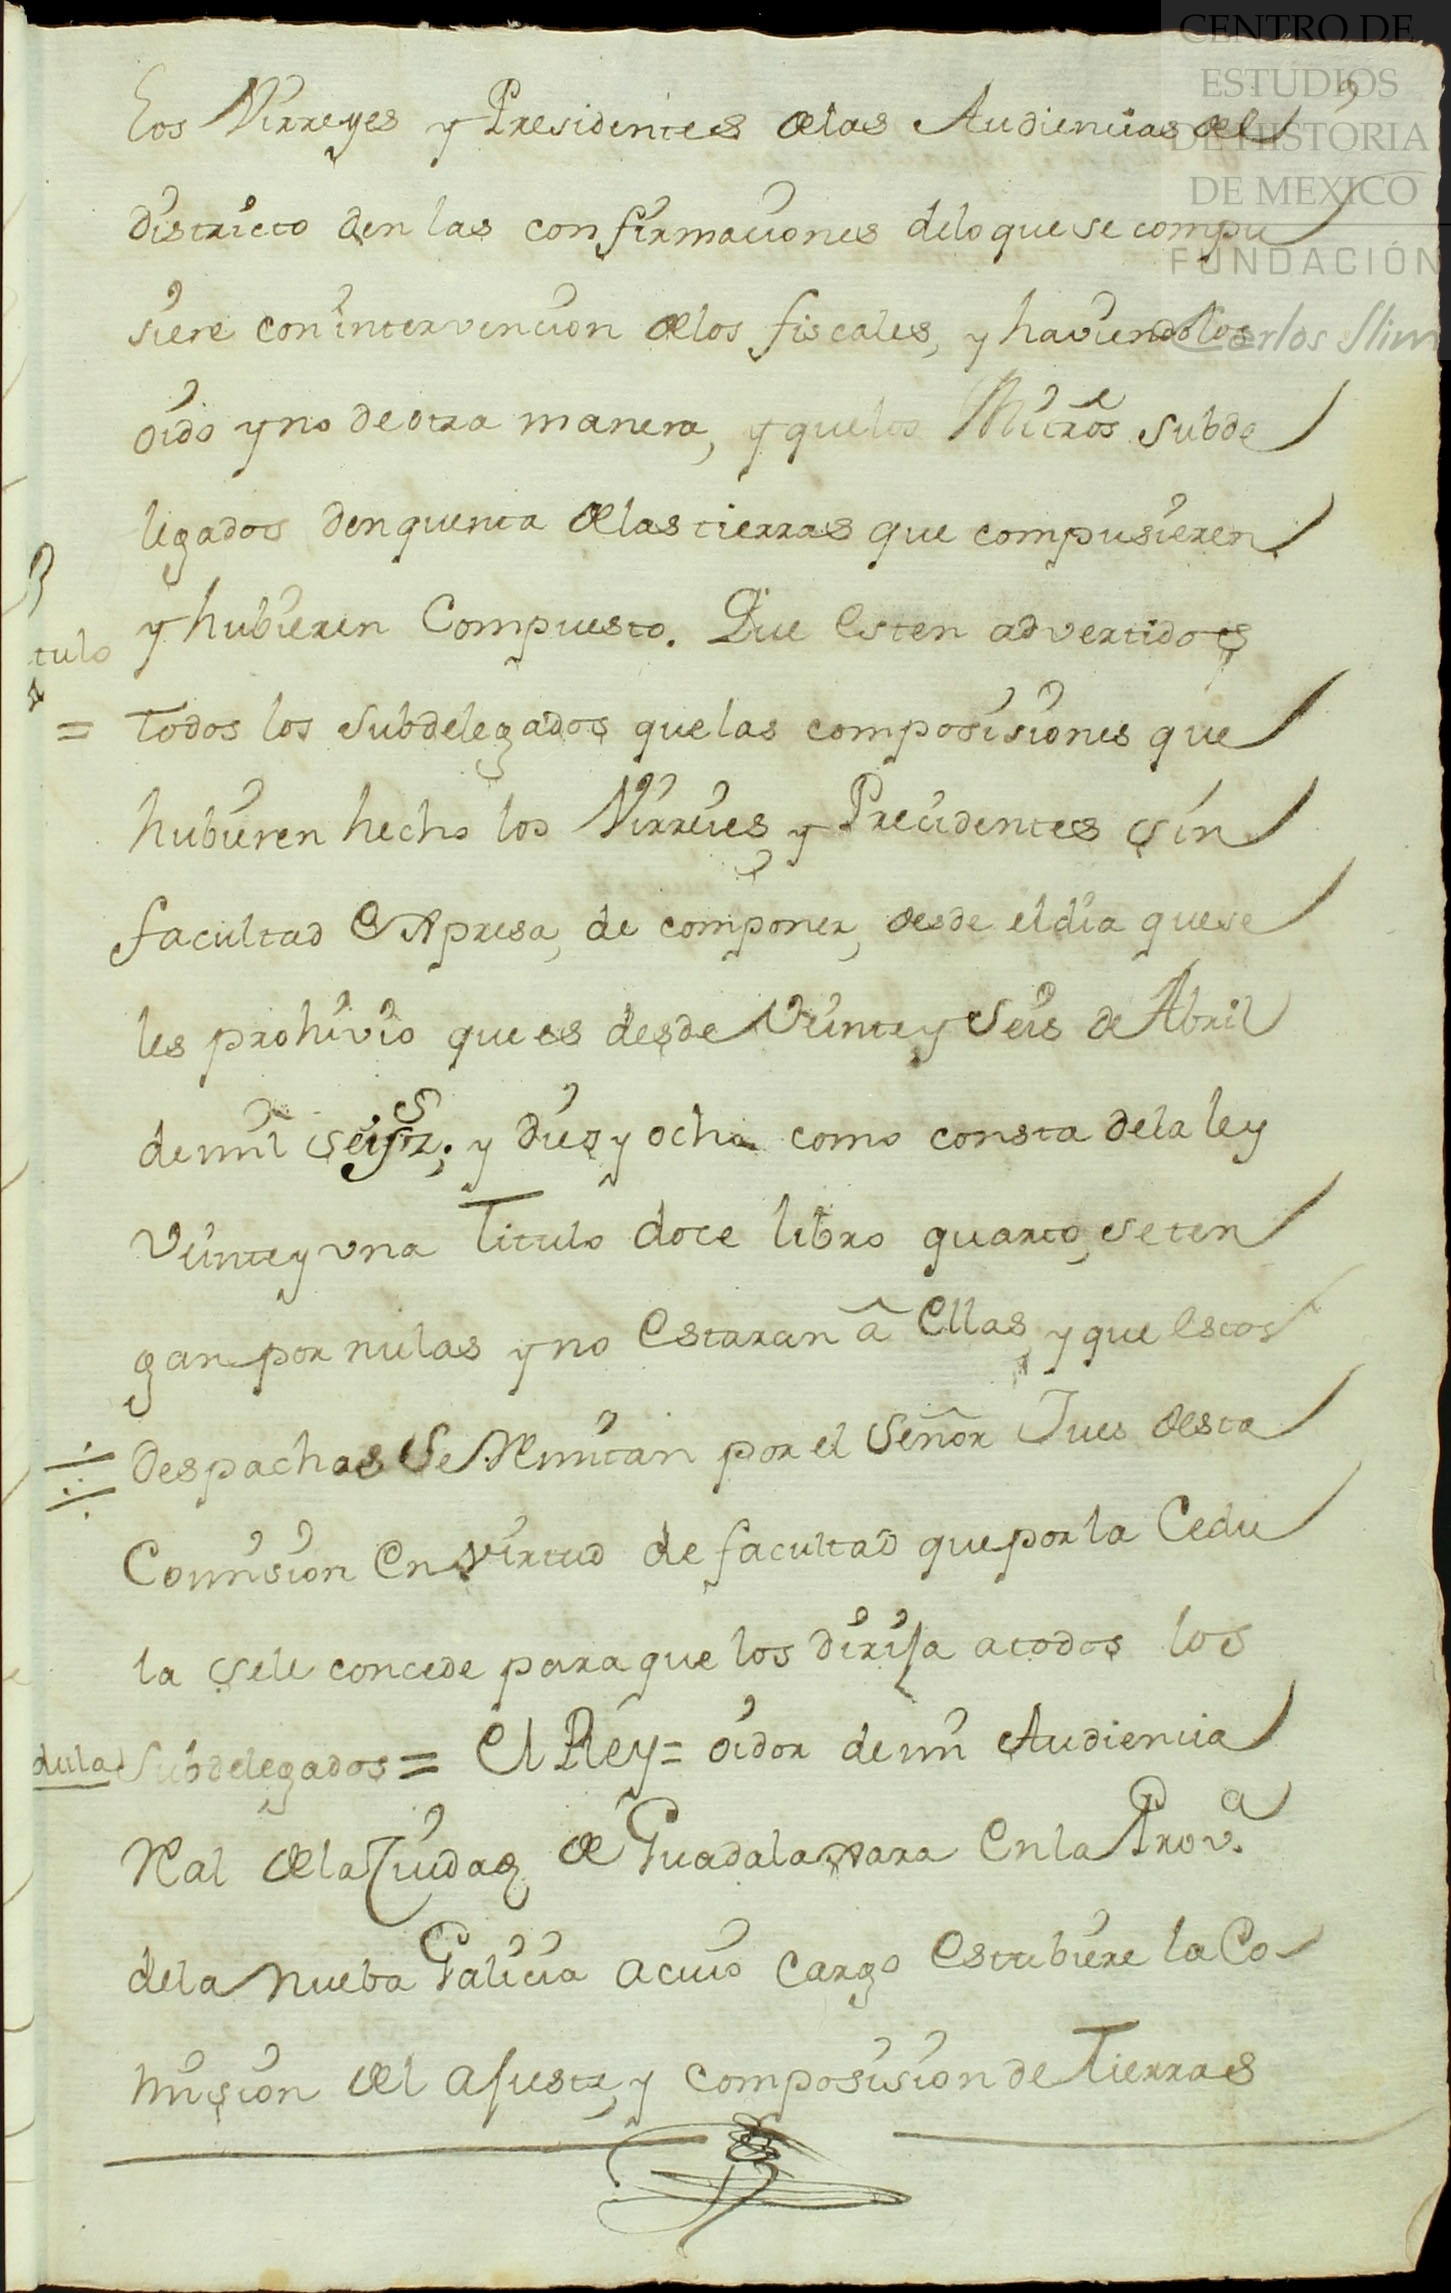 CENTRO DE
ESTUDIOS
DE HISTORIA
DE MEXICO
FUNDACIÓN
Carlos Slim
los Virreyes y Presidentes de las Audiencias del
districto den las confirmaciones delo que se compu
siere con intervencion de los fiscales, y haviendolos
oido y no de otra manera, y que los subde
legados den quenta de las tierras que compusieren
y hubieren Compuesto. Que esten advertidos
tulo
= todos los subdelegados que las composisiones que
hubieren hecho los Virreies y Precidentes sin
facultad expresa, de componer, desde el dia que se
les prohivio que es desde Veinte y Seis de Abril
de mil y diez y ocho como consta dela ley
Veinte y una Titulo doce libro quarto, se ten
gan por nulas y no estaran â Ellas, y que estos
despachos Se Remitan por el Señor Jues desta
Comision en virtud de facultad que por la Cedu
la se le concede para que los dirija a todos los
dula Subdelegados = El Rey = oidor de mi Audiencia
Real de la Ziudad de Guadalaxara en la Prov.ª
dela Nueba Galicia a cuio cargo estubiere la Co-
mision del ajuste, y composision de Tierras